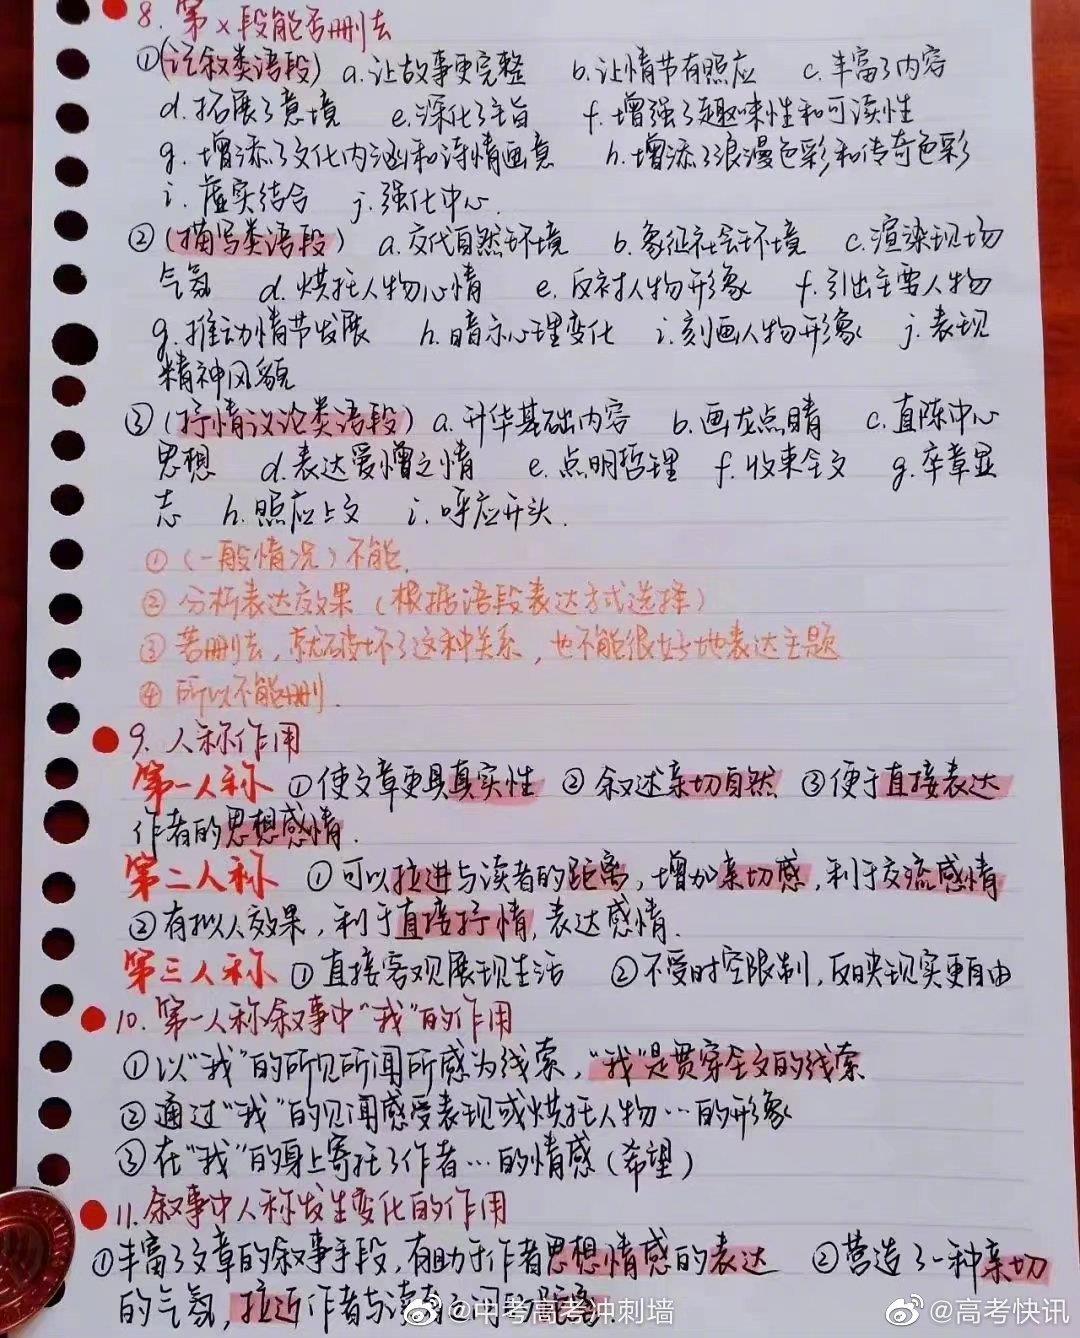 8. 第x段能否删去
①(记叙类语段) a.让故事更完整 b.让情节有照应 c.丰富了内容
d.拓展了意境 e.深化了主旨 f.增强了趣味性和可读性
g.增添了文化内涵和诗情画意 h.增添了浪漫色彩和传奇色彩
i.虚实结合 j.强化中心.
②(描写类语段) a.交代自然环境 b.象征社会环境 c.渲染现场
气氛 d.烘托人物心情 e.反衬人物形象 f.引出主要人物
g.推动情节发展 h.暗示心理变化 i.刻画人物形象 j.表现
精神风貌
③(抒情议论类语段) a.升华基础内容 b.画龙点睛 c.直陈中心
思想 d.表达爱憎之情 e.点明哲理 f.收束全文 g.卒章显
志 h.照应上文 i.呼应开头.
①(一般情况)不能.
②分析表达效果(根据语段表达方式选择)
③若删去,就破坏了这种关系,也不能很好地表达主题
④所以不能删.
9.人称作用
第一人称 ①使文章更具真实性 ②叙述亲切自然 ③便于直接表达
作者的思想感情.
第二人称 ①可以拉进与读者的距离,增加亲切感,利于交流感情
②有拟人效果,利于直接抒情,表达感情.
第三人称 ①直接客观展现生活 ②不受时空限制,反映现实更自由
10.第一人称叙事中"我"的作用
①以"我"的所见所闻所感为线索,"我"是贯穿全文的线索
②通过"我"的见闻感受表现或烘托人物…的形象
③在"我"的身上寄托了作者…的情感(希望)
11.叙事中人称发生变化的作用
①丰富了文章的叙事手段,有助于作者思想情感的表达 ②营造了一种亲切
的气氛,拉近作者与读者之间的距离.
@中考高考冲刺墙 @高考快讯